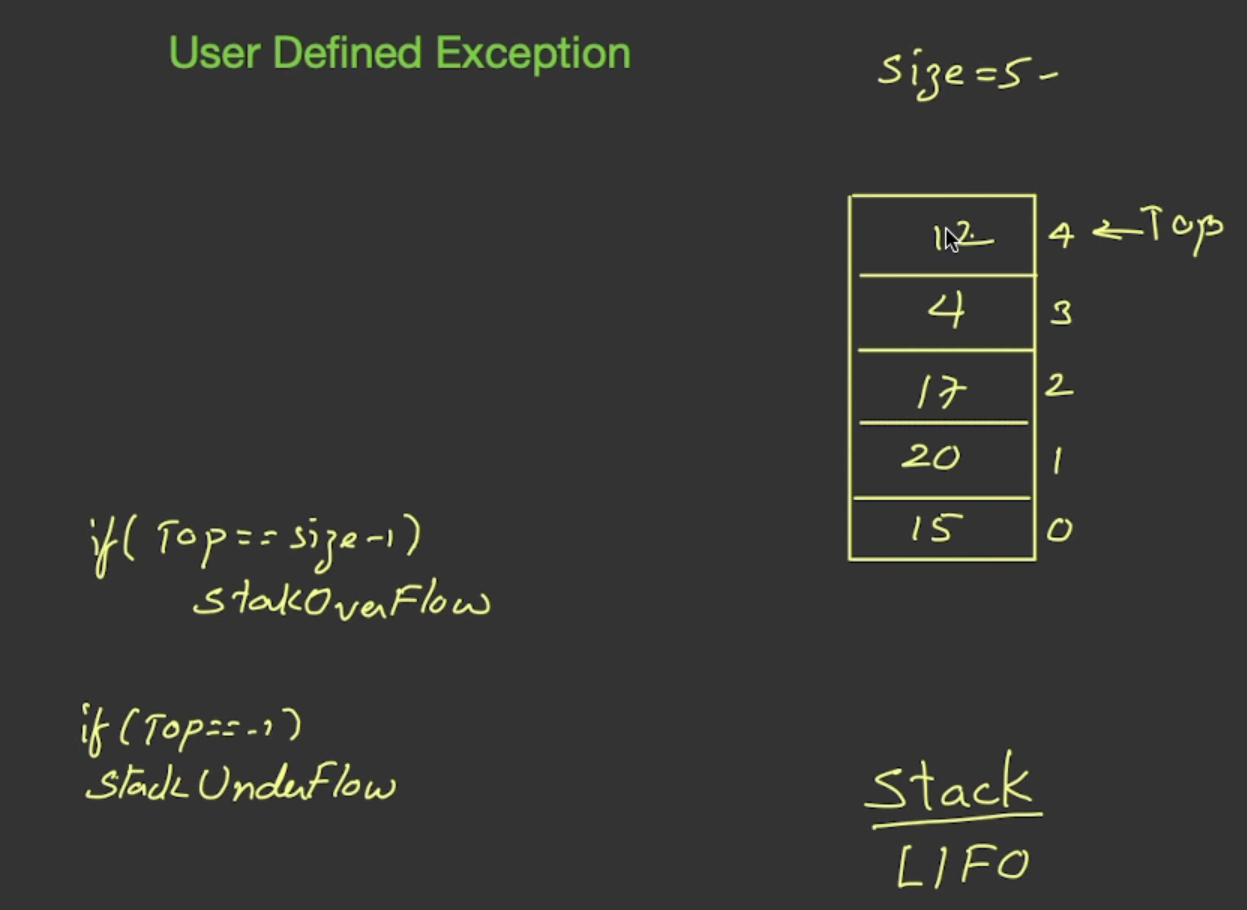 User Defined Exception
Size=5-
12 4 ← Top
4 3
17 2
20 1
15 0
if( Top == size-1)
StakOverFlow
if (Top==-1)
Stack UnderFlow
Stack
LIFO